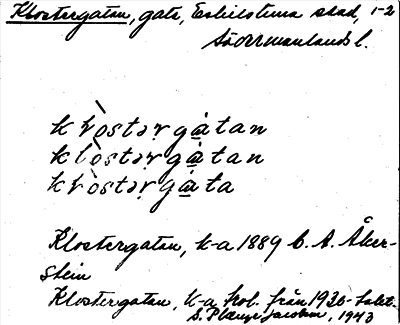 Klostergatan, gata, Eskilstuna stad, 1-2
Södermanlands l.
kɽòstəṛgɑ̀tan
klòstəṛgɑ̀tan
kɽòstəṛgɑ̀ta
Klostergatan, k-a 1889 C. A. Åker-
stein
Klostergatan, k-a från 1920-talet
S. 1943